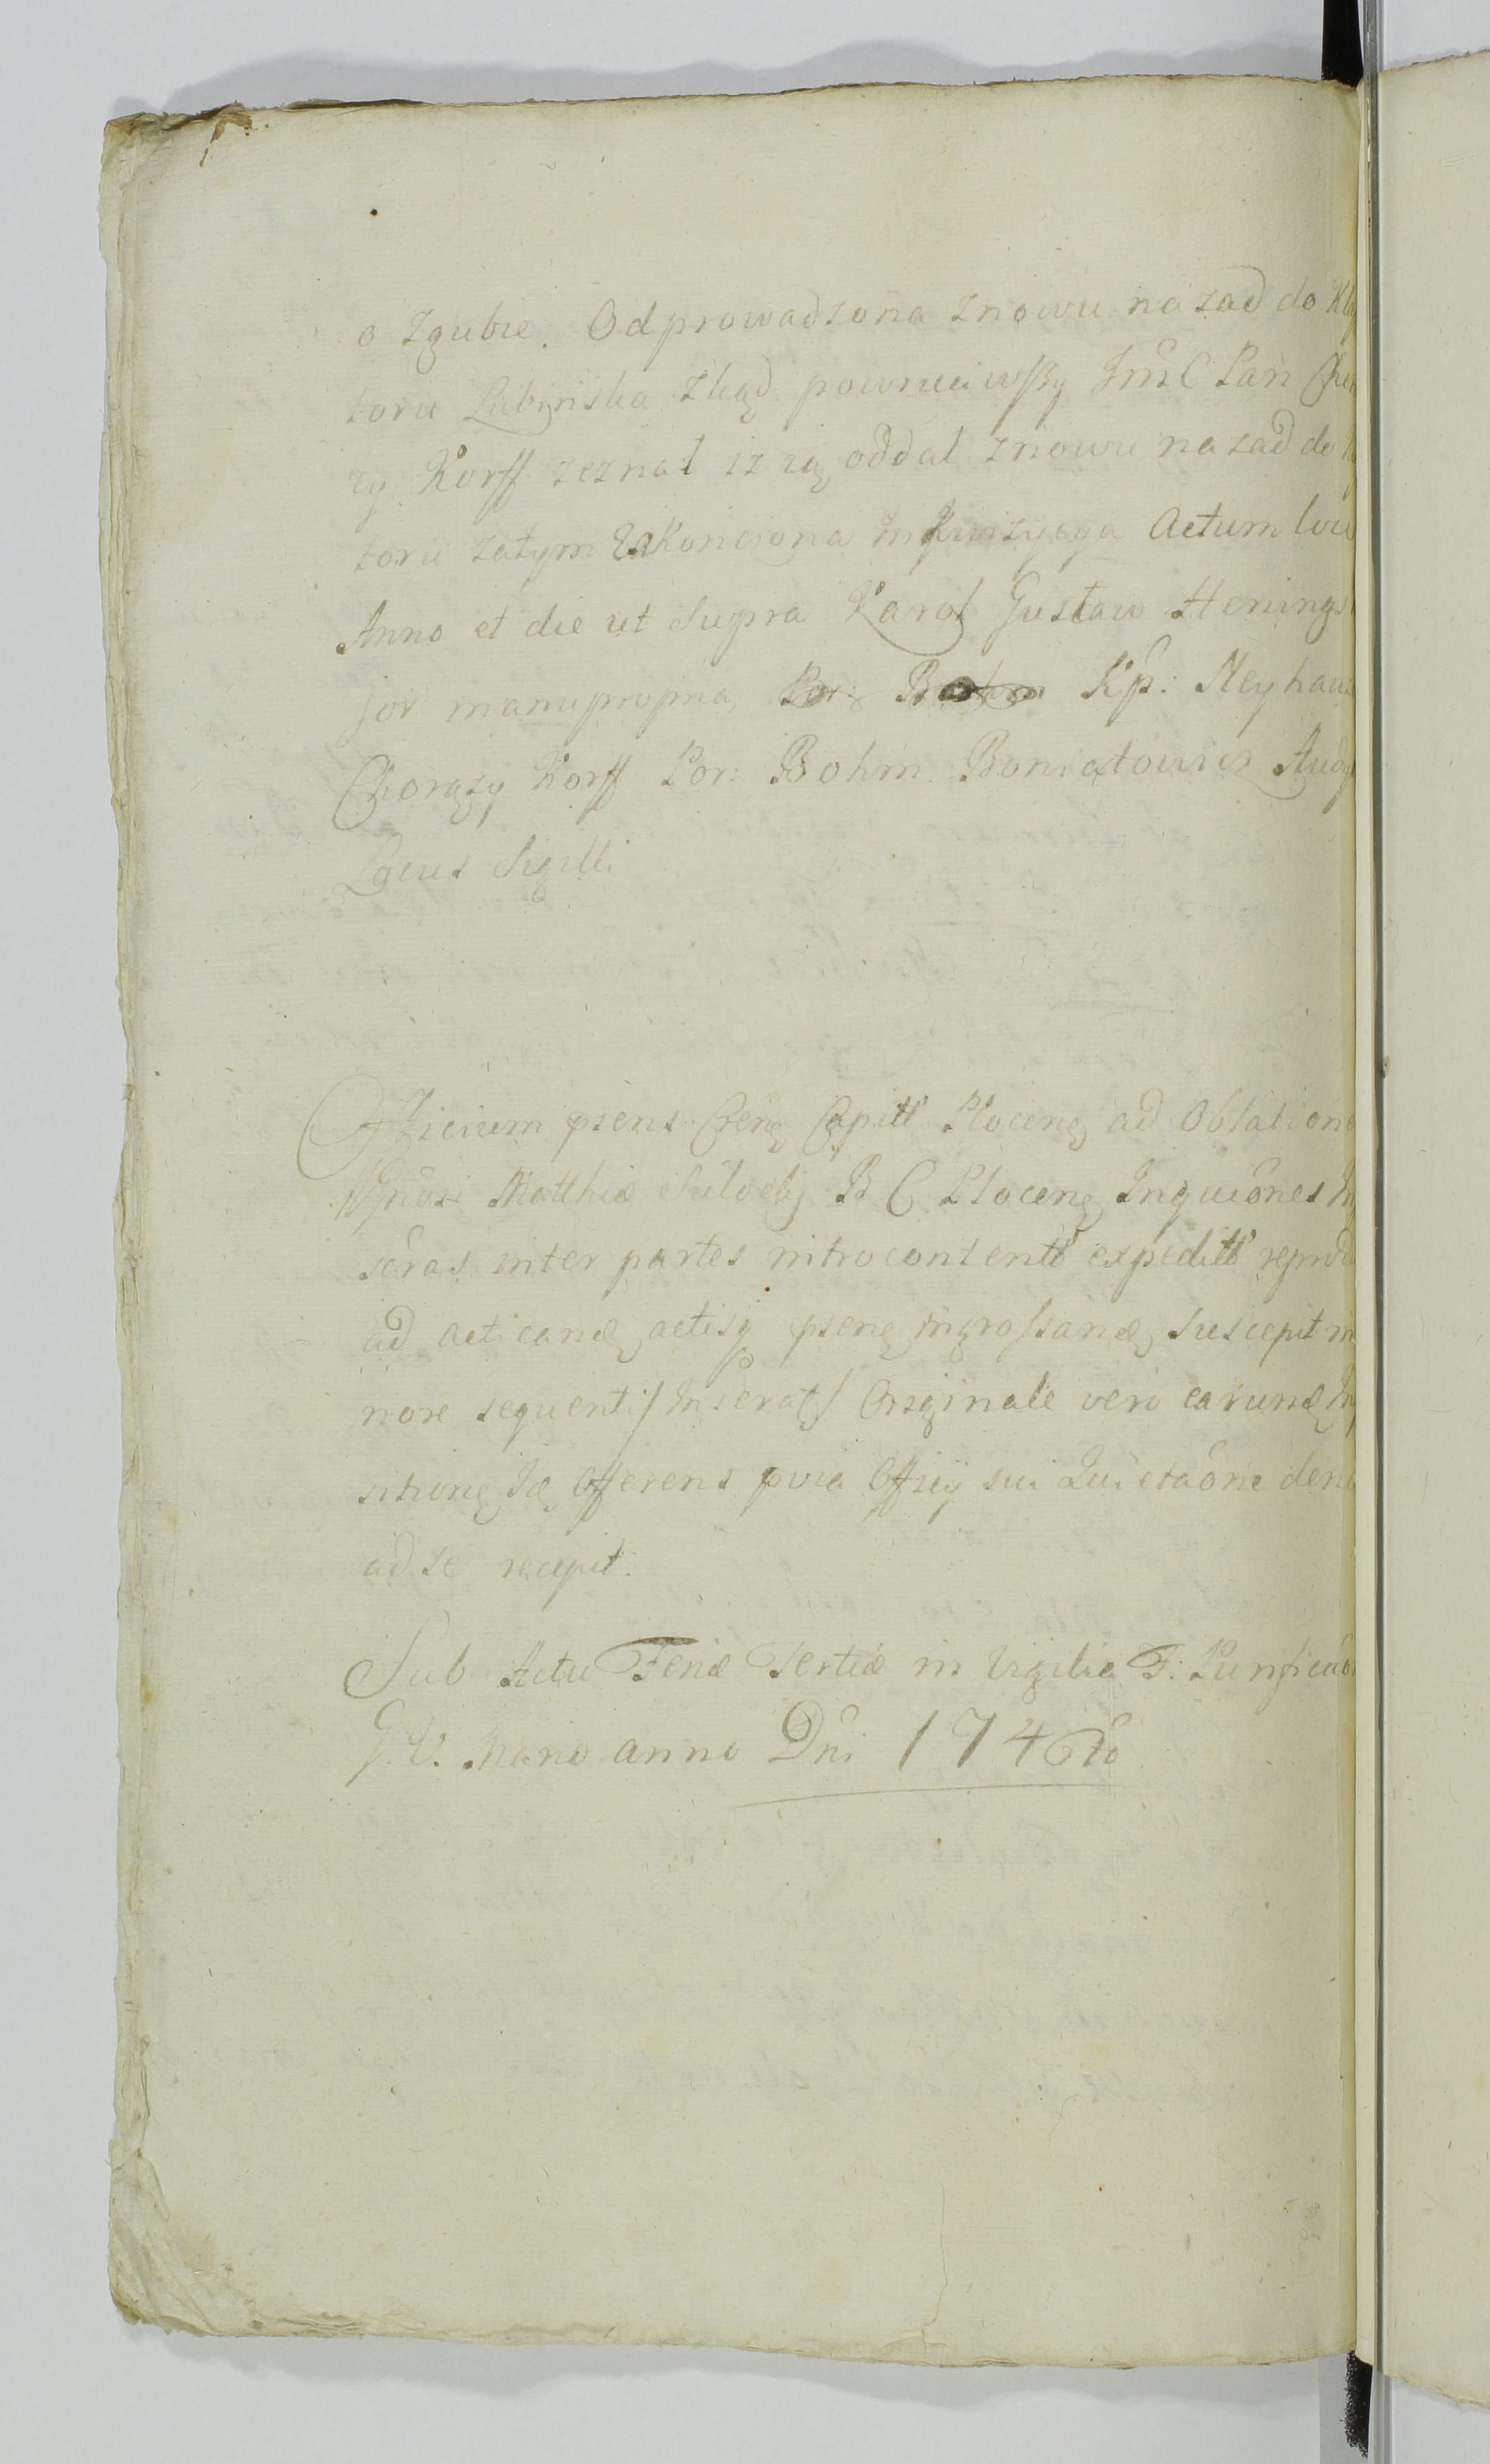 o zgubie. Odprowadzona znowu nazad do Kla
toru Lubinska zkąd powruciwszy JmC Pan Cho
ży Korff zeznał iz ią oddał znowu nazad do
toru zatym zakonczona Inkwizycya Actum loco
Anno et die ut Supra Karol Gustaw Henings
jor manupropria, Kp: Neyhaus
Chorąży Korff Por: Bohm. Boniatowicz Audy
Locus Sigilli
Officium psens Capitt Plocen ad Oblatione
Gnosi Matthiæ B C Plocen Inquiones
inter partes introcontentt expeditt
ad acticand actisq psen ingrossand suscepit
nore sequenti / Inserat / Originale vero earund
sitione Id Offerens Officij sui Quietaone
ad se recepit.
Sub Actu Feriæ Tertiæ in Vigilia F: Purificao
G. V. Mariæ anno Dni 174